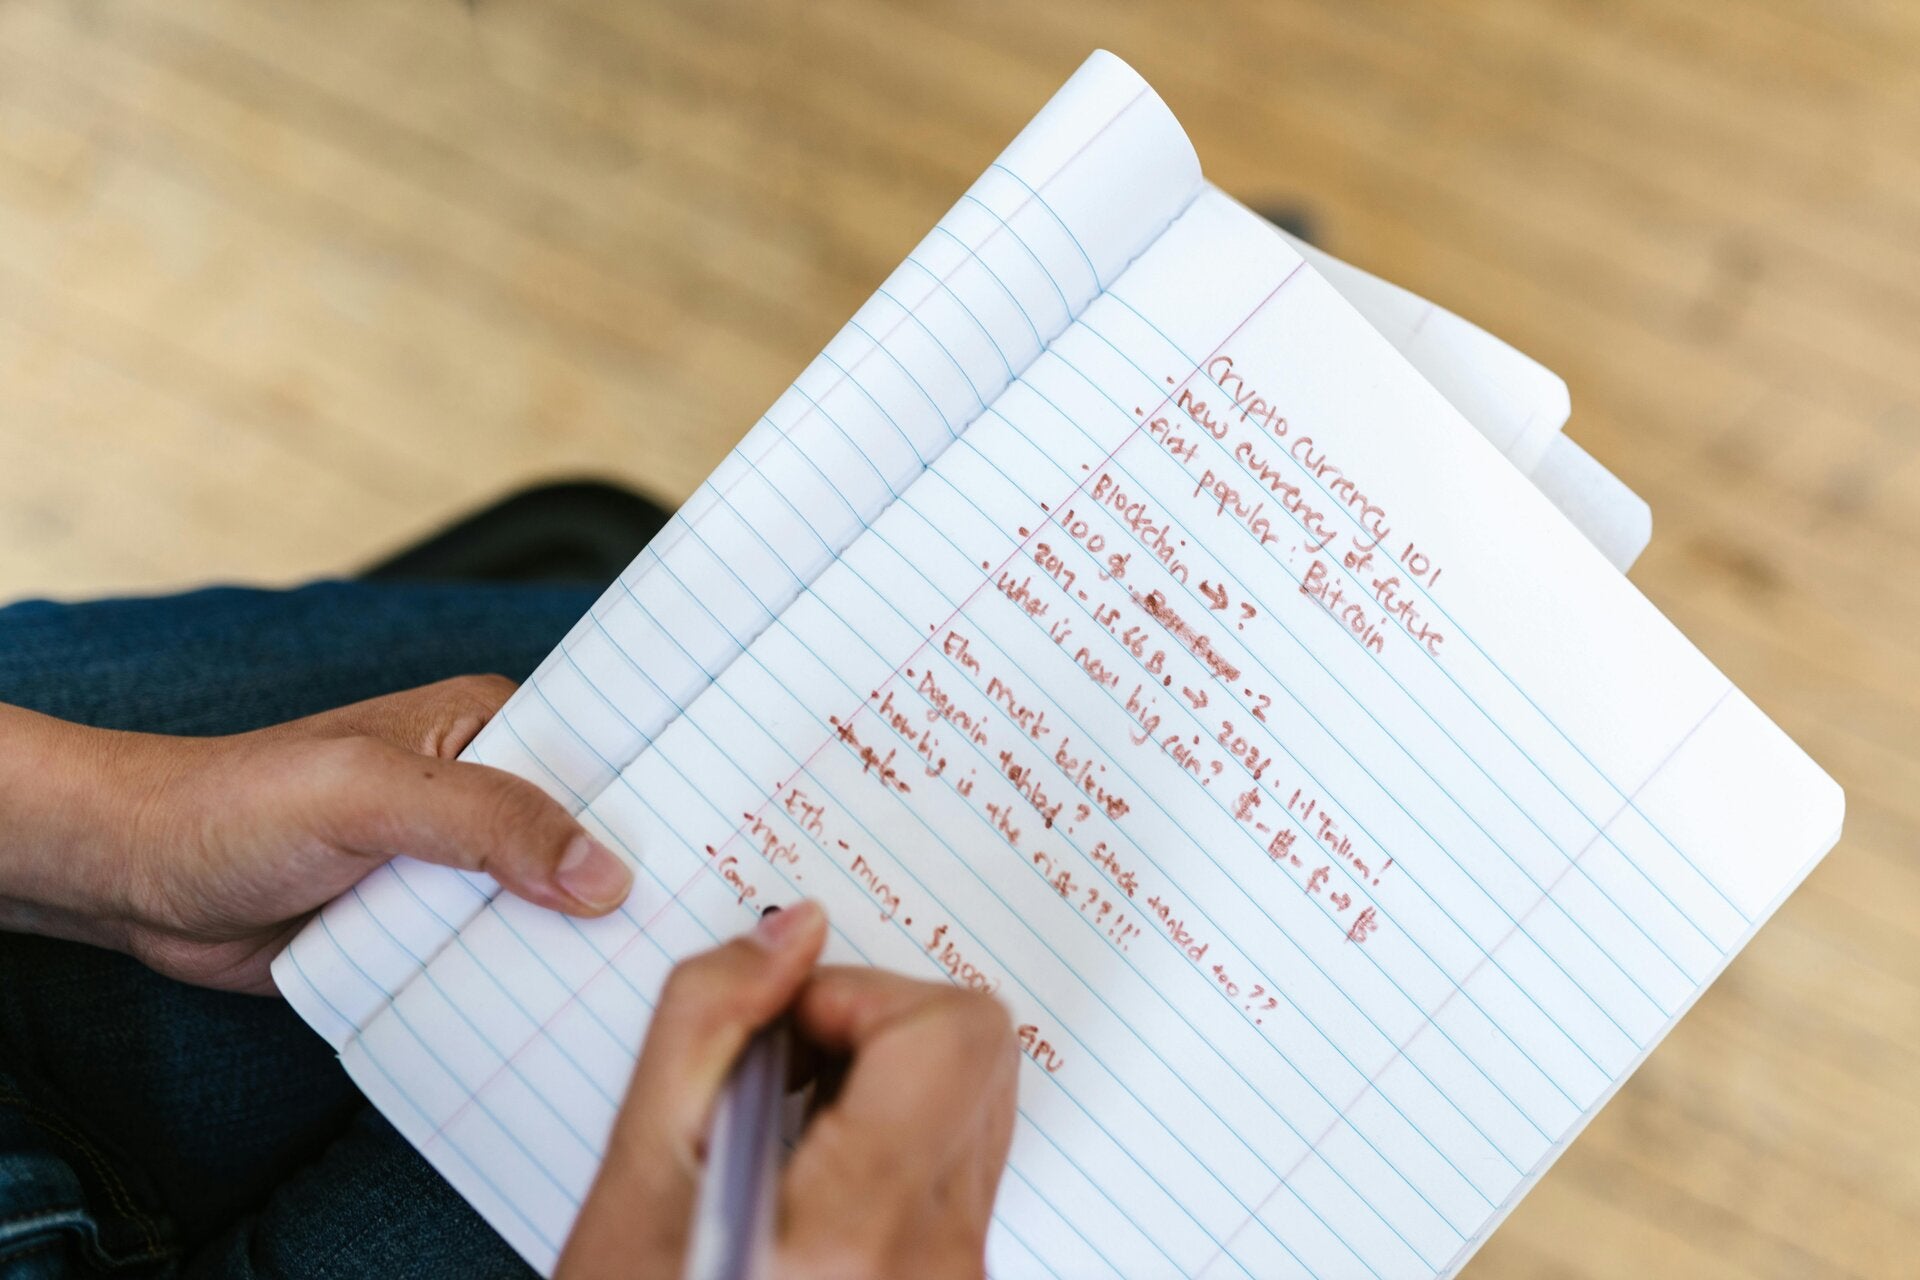 Crypto Currency 101
- new currency of future
- first popular : Bitcoin
- Blockchain → ?
- 100 of. -2
- 2017 - 15.66B. → 2021. 1.1 Trillion!
- What is next big coin? $ - $ - $ → $
- Elon musk believes
- Dogecoin tanked? stock tanked too??
- how big is the risk??!!!
- Eth. - mining. $1000 GPU
- ripple.
- Comp.